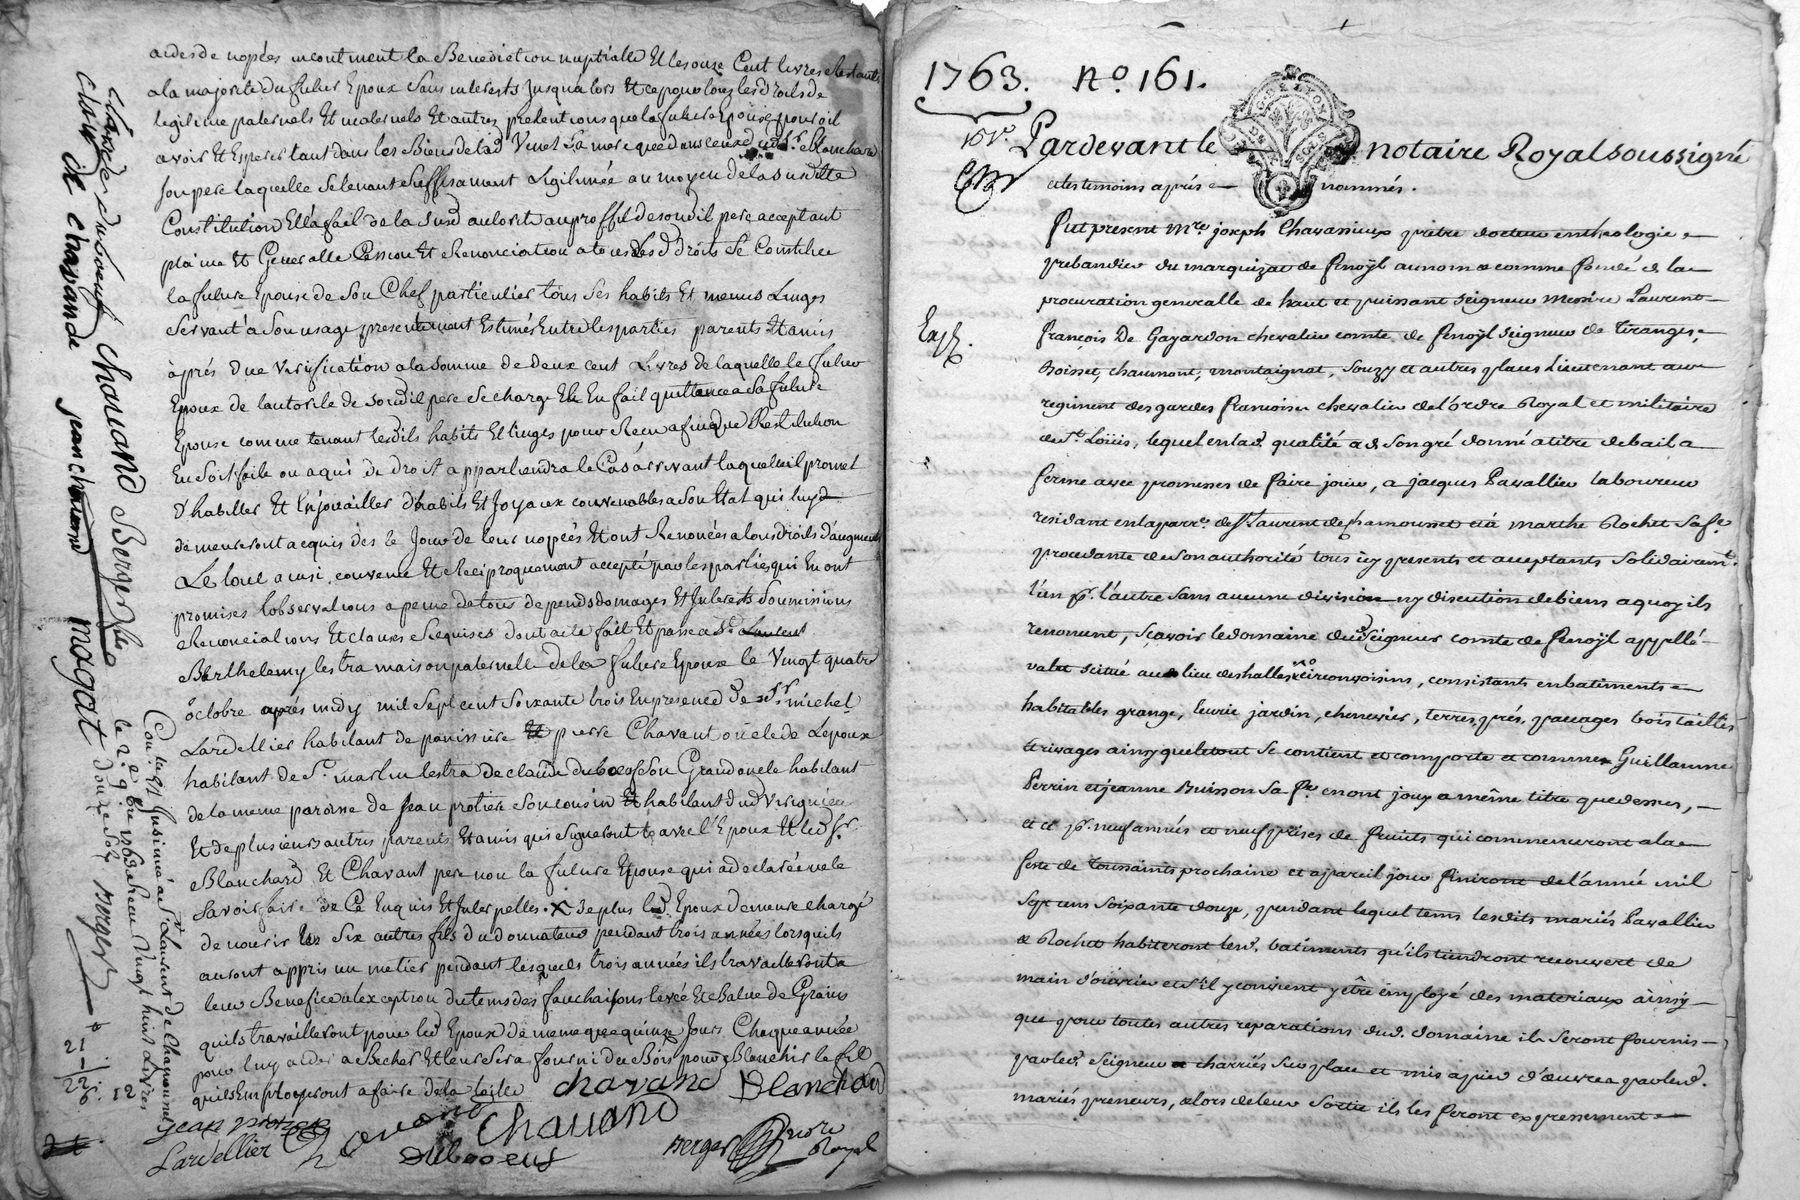 acdesde nopces incontinent la Benediction nuptialle Et les onze Cent livres restants
a la majorité du futur Epoux Sans interests Jusqu'a lors Et ce pour tous les droits de
legitime paternels Et maternels Et autres pretentions que la future Epouse pouroit
avoir Et Esperer tant dans les Biens de lad. Vinet Sa mere que dans ceux dud. Sr. Blanchard
son pere laquelle Se tenant Suffisament Legitimée au moyen de la susditte
Constitution Ella fait de la Susd. autorité au proffit de soudit pere acceptant
plaine Et Generalle Cession Et Renonciation a tous lesd. droits Se Constitue
la future Epouse de Son Chef particulier tous Ses habits Et menus Linges
Servant a Son usage presentement Estimés Entre les parties parents Et amis
après due Verification a la somme de deux cent Livres de laquelle le futur
Epoux de l'autorité de soudit pere Se charge Et En fait quittance a Sa future
Epouse comme tenant lesdits habits Et linges pour Recu afin que Restitution
En Soit faite ou a qui de droit appartiendra le Cas arrivant laquelle il promet
d'habiller Et Enjouailler d'habits Et Joyaux convenables a Son Etat qui luy
demeureront acquis dès le Jour de leur nopces Et ont Renoncées a tous droits d'augment
Le tout ainsi convenu Et Reciproquement accepté par les parties qui En ont
promises l'observations a peine de tous depends domages Et Interests Soumissions
Renonciations Et clauses Requises dont acte fait Et passé a St. Laurent
Barthelemy lestra maison paternelle de la future Epouse le Vingt quatre
octobre après midy mil Sept cent Soixante trois En presence de Sr. michel
Lardellier habitant de panissiere Et pierre Chavant oncle de Lepoux
habitant de St. martin lestra de claude duboeuf Son Grand oncle habitant
de la meme paroisse de Jean protiere Son cousin Et habitant dud. Virigneu
Et de plusieurs autres parents Et amis qui Signeront avec l'Epoux Et led. Sr.
Blanchard Et Chavant pere non la future Epouse qui a declaré ne le
Savoir faire de Ce Enquis Et Interpellés. X de plus led. Epoux demeure chargé
de nourir les Six autres fils du donnateur pendant trois années lorsquils
auront appris un metier pendant lesquels trois années ils travailleront a
leur Benefice a l'exception du tems des fauchaisons levée Et Batue de Grains
quils travailleront pour led. Epoux de meme que quinze Jours Chaque année
pour luy aider a Becher Et leur Sera fourni du Bois pour Blanchir le fil
quils Employeront a faire de la toille
chavand Blanchard
jean protiere Chavand Chavand
Lardellier Duboeuf Berger nore Royal
claude duboeuf chavand Berger
claude de chassande jean chavand magat
Con. lé Et Insinué a St. Laurent de Chamousset
le 2e. 9bre 1763 Recu Vingt huit Livres
douze sols Berger
21
1
22
6. 12
1763. No. 161.
Pardevant le notaire Royal soussigné
et les temoins après nommés.
Fut present Mre. joseph Chavassieux prêtre docteur en theologie
prebandier du marquizat de fenoÿl au nom & comme fondé de la
procuration generalle de haut et puissant seigneur Messire Laurent
Exp.
françois De Gayardon chevalier comte de fenoÿl seigneur de Tiranges,
Boisset, chaumont, montaignat, Souzy et autres places Lieutenant au
regiment des gardes françoises chevalier de l'ordre Royal et militaire
de St. Loüis, lequel en lad. qualité a de Son gré donné a titre de bail a
ferme avec promesses de faire jouir, a jacques Pavallier laboureur
residant en la parr. de St. Laurent de chamousset et a marthe Rochet Sa fe.
procedante de Son authorité tous icy presents et acceptants Solidairemt.
l'un pr. l'autre sans aucune division ny discution de biens a quoy ils
renoncent, Sçavoir le domaine dud. Seigneur comte de fenoÿl appellé
valet scitué au lieu des halles & circonvoisins, consistants en batiments
habitables grange, Ecurie jardin, chenevier, terres, prés, pacages bois taillis
& rivages ainsy que le tout Se contient et comporte & comme Guillaume
Perrin et jeanne Buisson Sa fe. en ont jouy a même titre que dessus,
et ce pr. neuf années et neuf prises de fruits qui commenceront a la
feste de Toussaints prochaine et a pareil jour finiront de l'année mil
Sept cens soixante douze, pendant lequel tems lesdits mariés Pavallier
& Rochet habiteront lesd. batiments qu'ils tiendront recouvert de
main d'ouvrier et s'il y convient y être employé des materiaux ainsy
que pour toutes autres reparations dud. domaine ils Seront fournis
par led. Seigneur & charriés Sur place et mis a pied d'œuvre par lesd.
mariés preneurs, & lors de leur Sortie ils les feront expressement